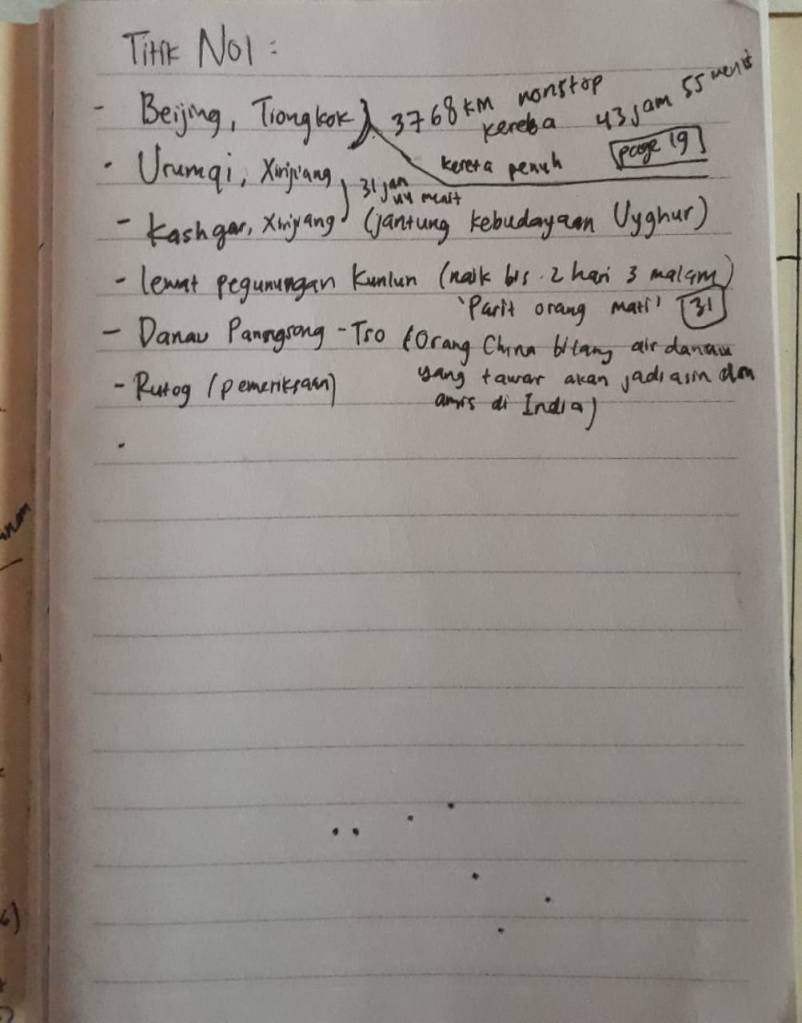 Titik Nol :
- Beijing, Tiongkok } 3768 km nonstop kereta 43 jam 55 menit
kereta penuh page 19
- Urumqi, Xinjiang } 31 jam menit
- Kashgar, Xinjiang (jantung kebudayaan Uyghur)
- lewat pegunungan Kunlun (naik bis 2 hari 3 malam)
'Parit orang mati' 31
- Danau Panngsong - Tso (Orang China bilang air danau
yang tawar akan jadi asin dan
amis di India)
- Rutog (pemeriksaan)
-